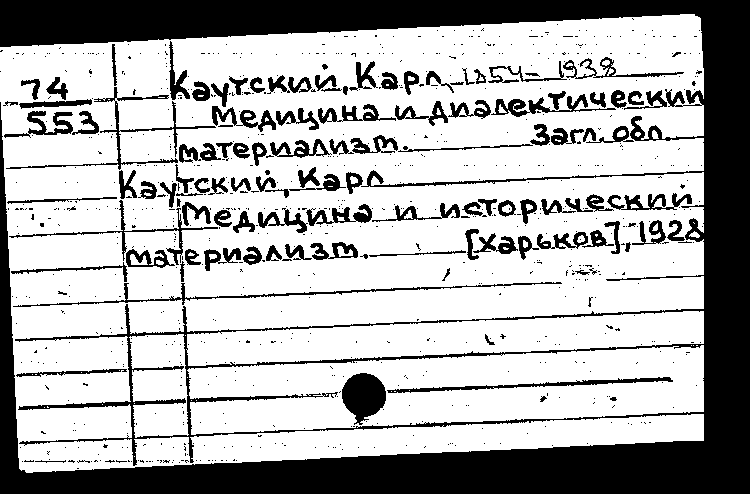 74
553
Каутский, Карл, 1854–1938
Медицина и диалектический
материализм. Загл. обл.
Каутский, Карл
Медицина и исторический
материализм. [Харьков], 1928